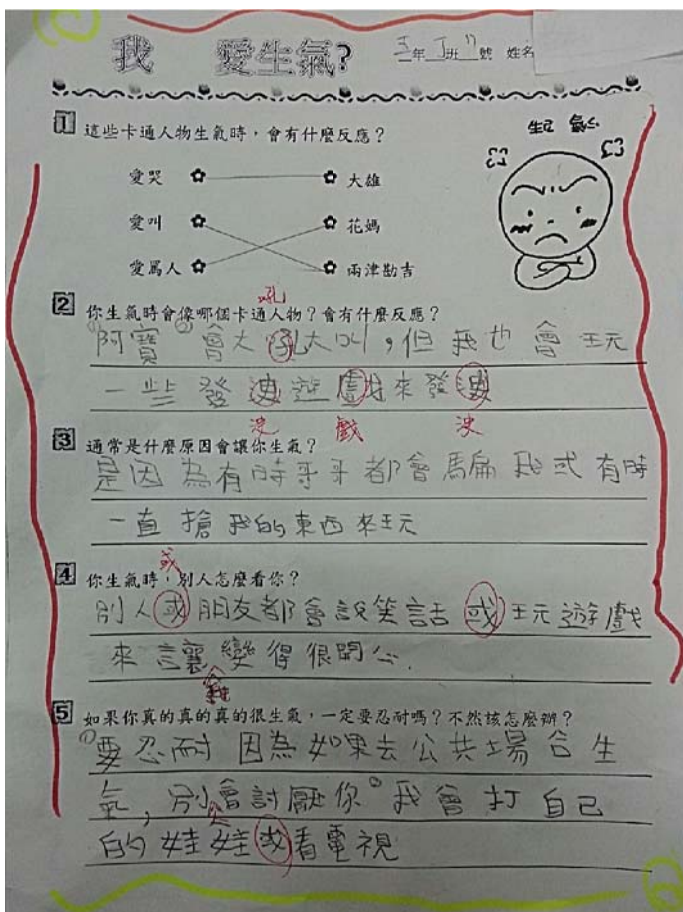 我 愛生氣?
三年 丁班 11號 姓名
1 這些卡通人物生氣時，會有什麼反應？
生 氣
愛哭 大雄
愛叫 花媽
愛罵人 兩津勘吉
吼
2 你生氣時會像哪個卡通人物？會有什麼反應？
(1)阿寶 (2)會大吼大叫，但我也會玩
一些發洩遊戲來發洩
洩 戲 洩
3 通常是什麼原因會讓你生氣？
是因為有時哥哥都會騙我或有時
一直搶我的東西來玩
或
4 你生氣時，別人怎麼看你？
別人或朋友都會說笑話或玩遊戲
來讓變得很開心.
5 如果你真的真的真的很生氣，一定要忍耐嗎？不然該怎麼辦？
(1)要忍耐 因為如果去公共場合生
氣，別會討厭你。我會打自己
人
的娃娃或看電視